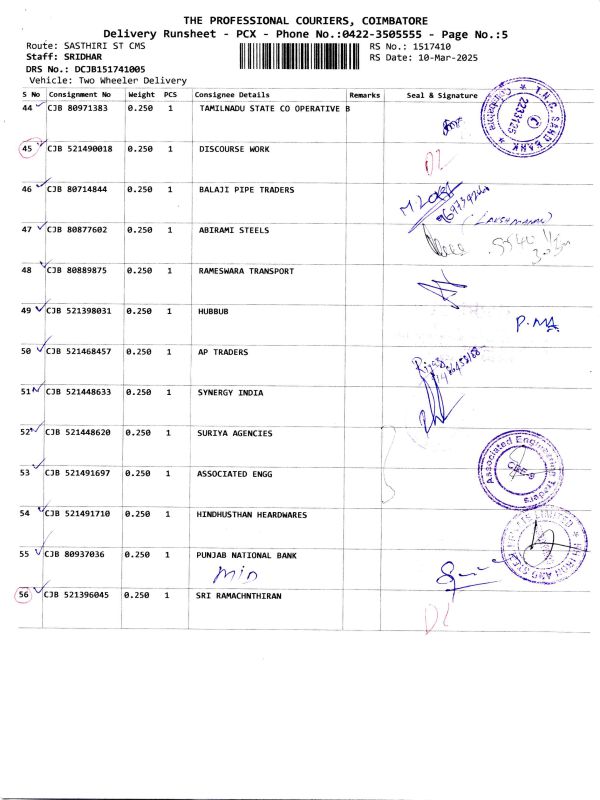 THE PROFESSIONAL COURIERS, COIMBATORE
Delivery Runsheet - PCX - Phone No.:0422-3505555 - Page No.:5
Route: SASTHIRI ST CMS RS No.: 1517410
Staff: SRIDHAR RS Date: 10-Mar-2025
DRS No.: DCJB151741005
Vehicle: Two Wheeler Delivery
S No Consignment No Weight PCS Consignee Details Remarks Seal & Signature
44 CJB 80971383 0.250 1 TAMILNADU STATE CO OPERATIVE B
45 CJB 521490018 0.250 1 DISCOURSE WORK
46 CJB 80714844 0.250 1 BALAJI PIPE TRADERS
(LAKSHMANAN)
47 CJB 80877602 0.250 1 ABIRAMI STEELS
48 CJB 80889875 0.250 1 RAMESWARA TRANSPORT
49 CJB 521398031 0.250 1 HUBBUB
P.MA
50 CJB 521468457 0.250 1 AP TRADERS
51 CJB 521448633 0.250 1 SYNERGY INDIA
52 CJB 521448620 0.250 1 SURIYA AGENCIES
53 CJB 521491697 0.250 1 ASSOCIATED ENGG
Associated Engineering Traders
54 CJB 521491710 0.250 1 HINDHUSTHAN HEARDWARES
55 CJB 80937036 0.250 1 PUNJAB NATIONAL BANK
56 CJB 521396045 0.250 1 SRI RAMACHNTHIRAN